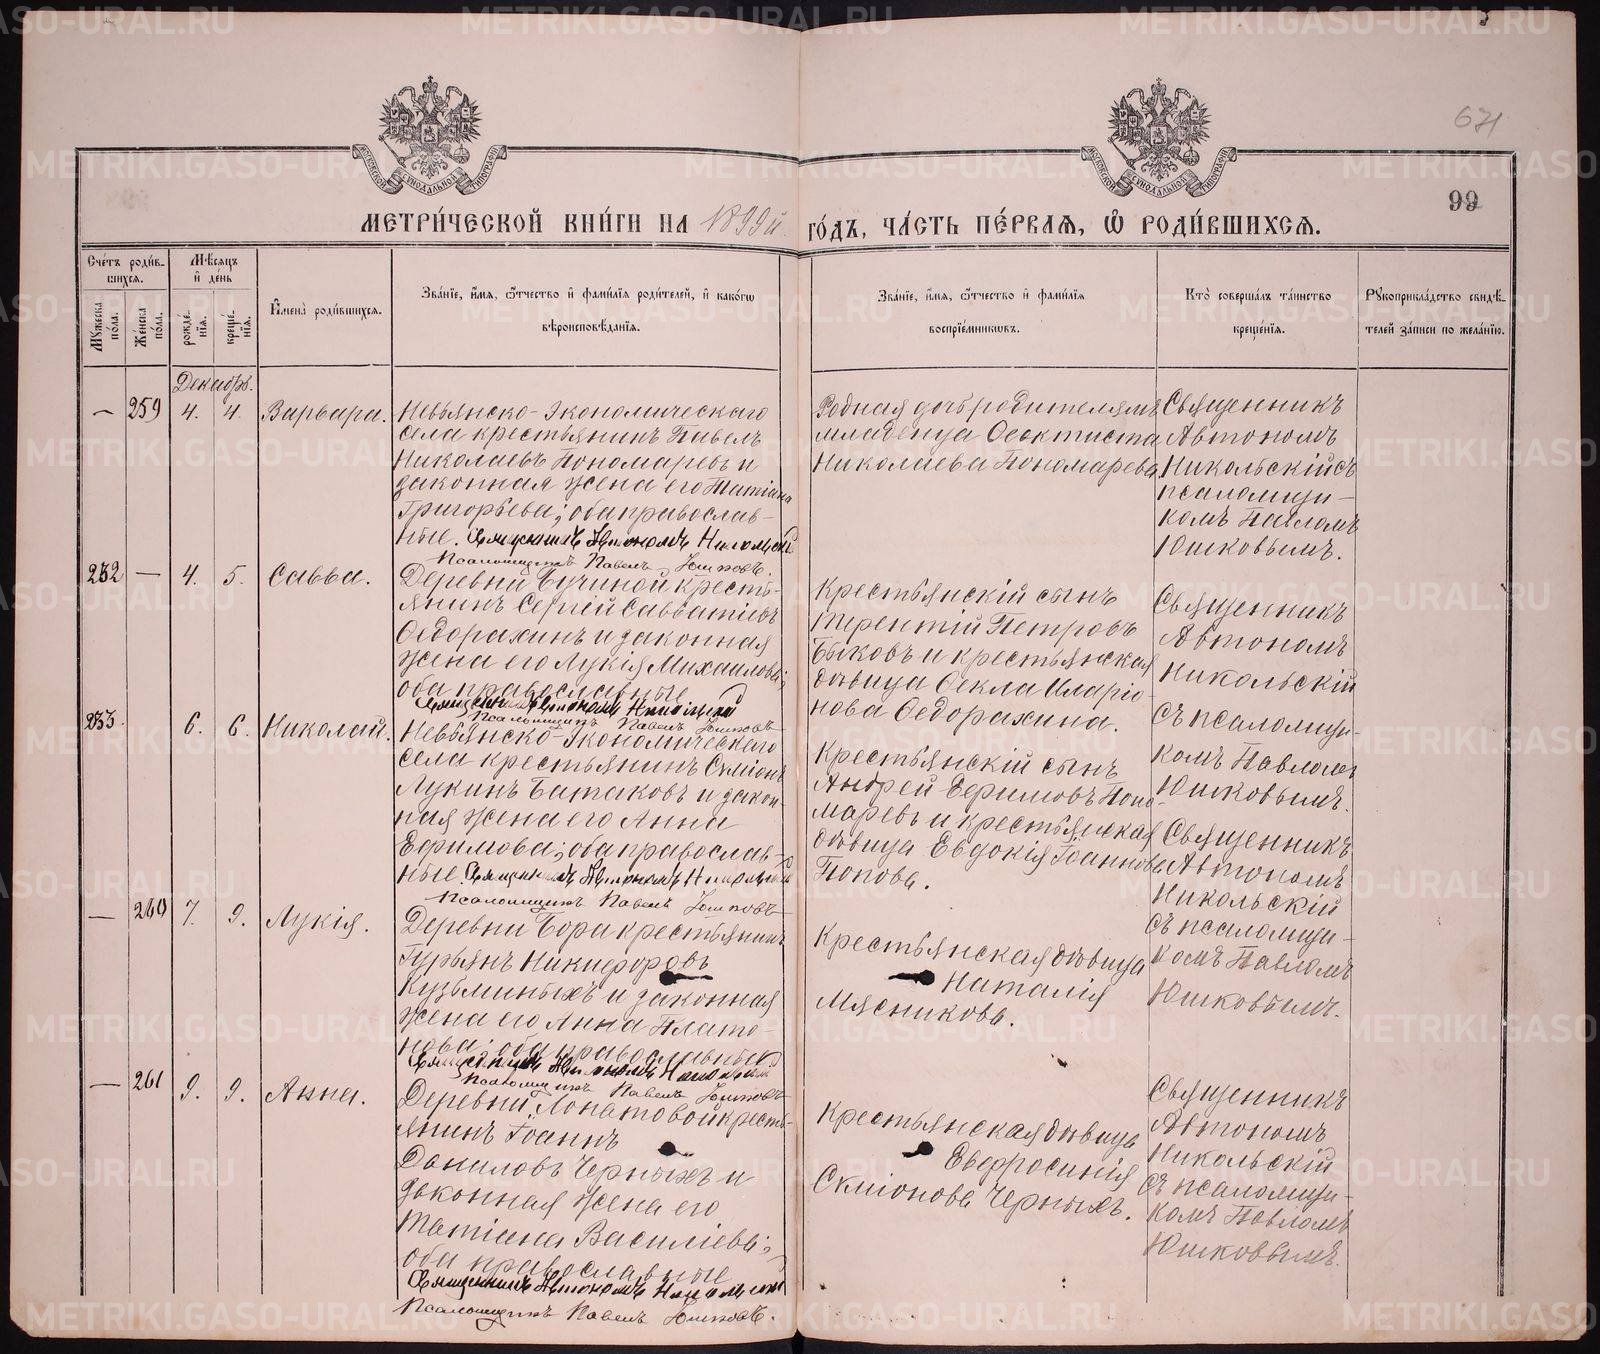 671
99
МЕТРИ́ЧЕСКОЙ КНИ́ГИ НА 1899й ГО́ДЪ, ЧА́СТЬ ПЕ́РВАѦ, Ѡ РОДИ́ВШИХСѦ.
Счетъ роди́в-
шихсѧ.
Мужеска по́ла.
Же́нска по́ла.
Мѣ́сѧцъ
и де́нь
рожде́-
нїѧ.
креще́-
нїѧ.
Имена̀ роди́вшихсѧ.
Зва́нїе, и́мѧ, ѻ҆́тчество и фами́лїѧ роди́телей, и како́гѡ
вѣроисповѣ́данїѧ.
Зва́нїе, и́мѧ, ѻ҆́тчество и фами́лїѧ
воспрїе́мникѡвъ.
Кто̀ соверша́лъ та́инство
креще́нїѧ.
Рꙋкоприкла́дство свидѣ́-
телей за́писи по жела́нїю.
Декабрь.
— 259 4. 4. Варвара.
Невьянско-Экономическаго
села крестьянинъ Павелъ
Николаевъ Пономаревъ и
законная жена его Татіана
Григорьева; оба православ-
ные. Священникъ Автономъ Никольскій
Псаломщикъ Павелъ Юшковъ.
Родная дочь родителямъ
младенца Феоктиста
Николаева Пономарева
Священникъ
Автономъ
Никольскій съ
псаломщи-
комъ Павломъ
Юшковымъ.
232 — 4. 5. Савва.
Деревни Бучиной кресть-
янинъ Сергій Савватіевъ
Федорахинъ и законная
жена его Лукія Михаилова;
оба православные
Священникъ Автономъ Никольскій
Псаломщикъ Павелъ Юшковъ
Крестьянскій сынъ
Терентій Петровъ
Быковъ и крестьянская
дѣвица Фекла Иларіо-
нова Федорахина.
Священникъ
Автономъ
Никольскій
съ псаломщи-
комъ Павломъ
Юшковымъ.
233. 6. 6. Николай.
Невьянско-Экономическаго
села крестьянинъ Симіонъ
Лукинъ Батаковъ и закон-
ная жена его Анна
Ефимова; оба православ-
ные Священникъ Автономъ Никольскій
Псаломщикъ Павелъ Юшковъ
Крестьянскій сынъ
Андрей Ефимовъ Поно-
маревъ и крестьянская
дѣвица Евдокія Іоаннова
Попова.
Священникъ
Автономъ
Никольскій
съ псаломщи-
комъ Павломъ
Юшковымъ.
— 260 7. 9. Лукія.
Деревни Бора крестьянинъ
Гурьянъ Никифоровъ
Кузьминыхъ и законная
жена его Анна Плато-
нова; оба православные
Священникъ Автономъ Никольскій
Псаломщикъ Павелъ Юшковъ
Крестьянская дѣвица
Наталія
Мясникова.
— 261 9. 9. Анна.
Деревни Лопатовой кресть-
янинъ Іоаннъ
Даниловъ Черныхъ и
законная жена его
Татіана Василіева;
оба православные
Священникъ Автономъ Никольскій
Псаломщикъ Павелъ Юшковъ.
Крестьянская дѣвица
Евфросинія
Симіонова Черныхъ.
Священникъ
Автономъ
Никольскій
съ псаломщи-
комъ Павломъ
Юшковымъ.
METRIKI.GASO-URAL.RU